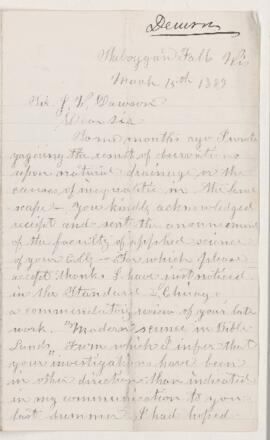 Sheboygan Falls Wis
March 15th 1889
Sir J. W. Dawson
Dear Sir
Some months ago I wrote
the result of observations
upon natural drainage or the
causes of inequalities in the land
scape – You kindly acknowledged
receipt and sent the announcement
of the faculty of applied science
of your – For which please
accept thanks I have just noticed
in the Standard Chicago
a commendatory review of your late
work. "Modern science in Bible
Lands. From which I infer that
your investigations have been
in other direction than indicated
in my communication to you
last summer I had hoped